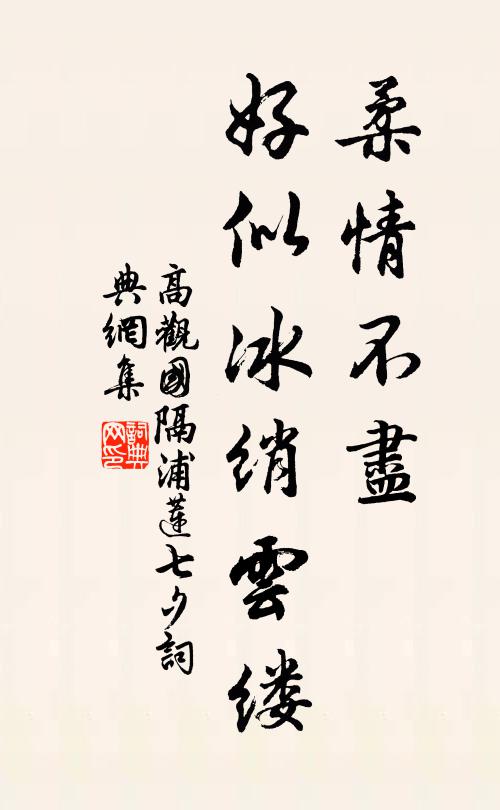 柔情不盡
好似冰綃雲缕
高觀國隔浦蓮七夕詞
典網集
詞典
网印